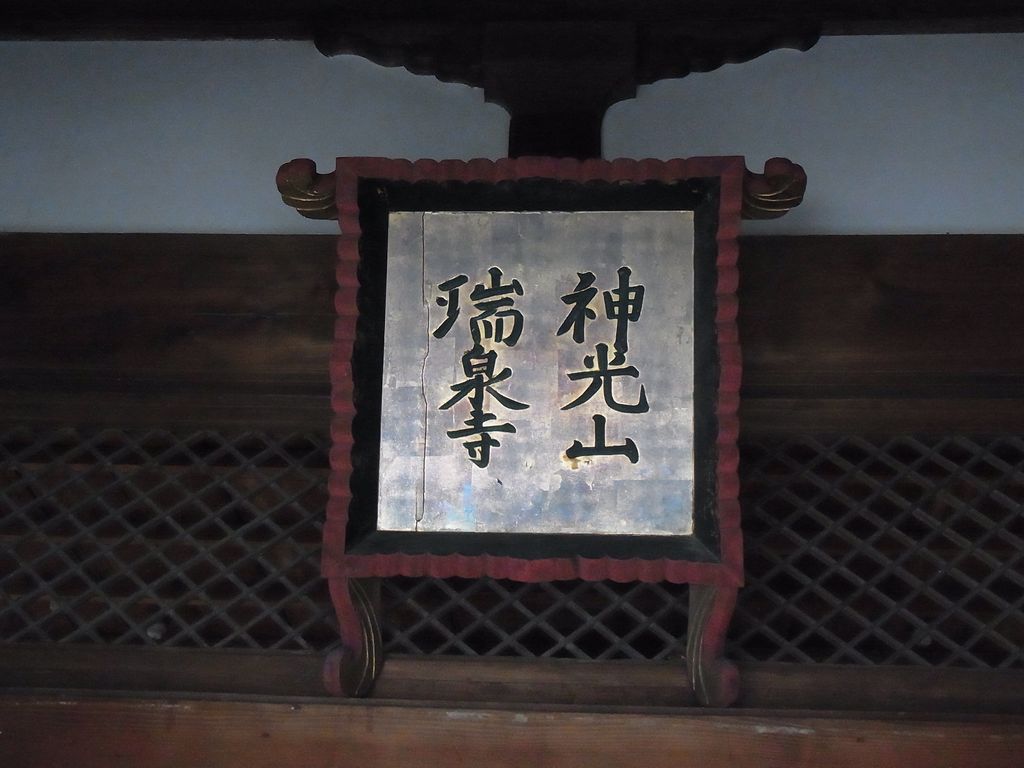 神光山
瑞泉寺